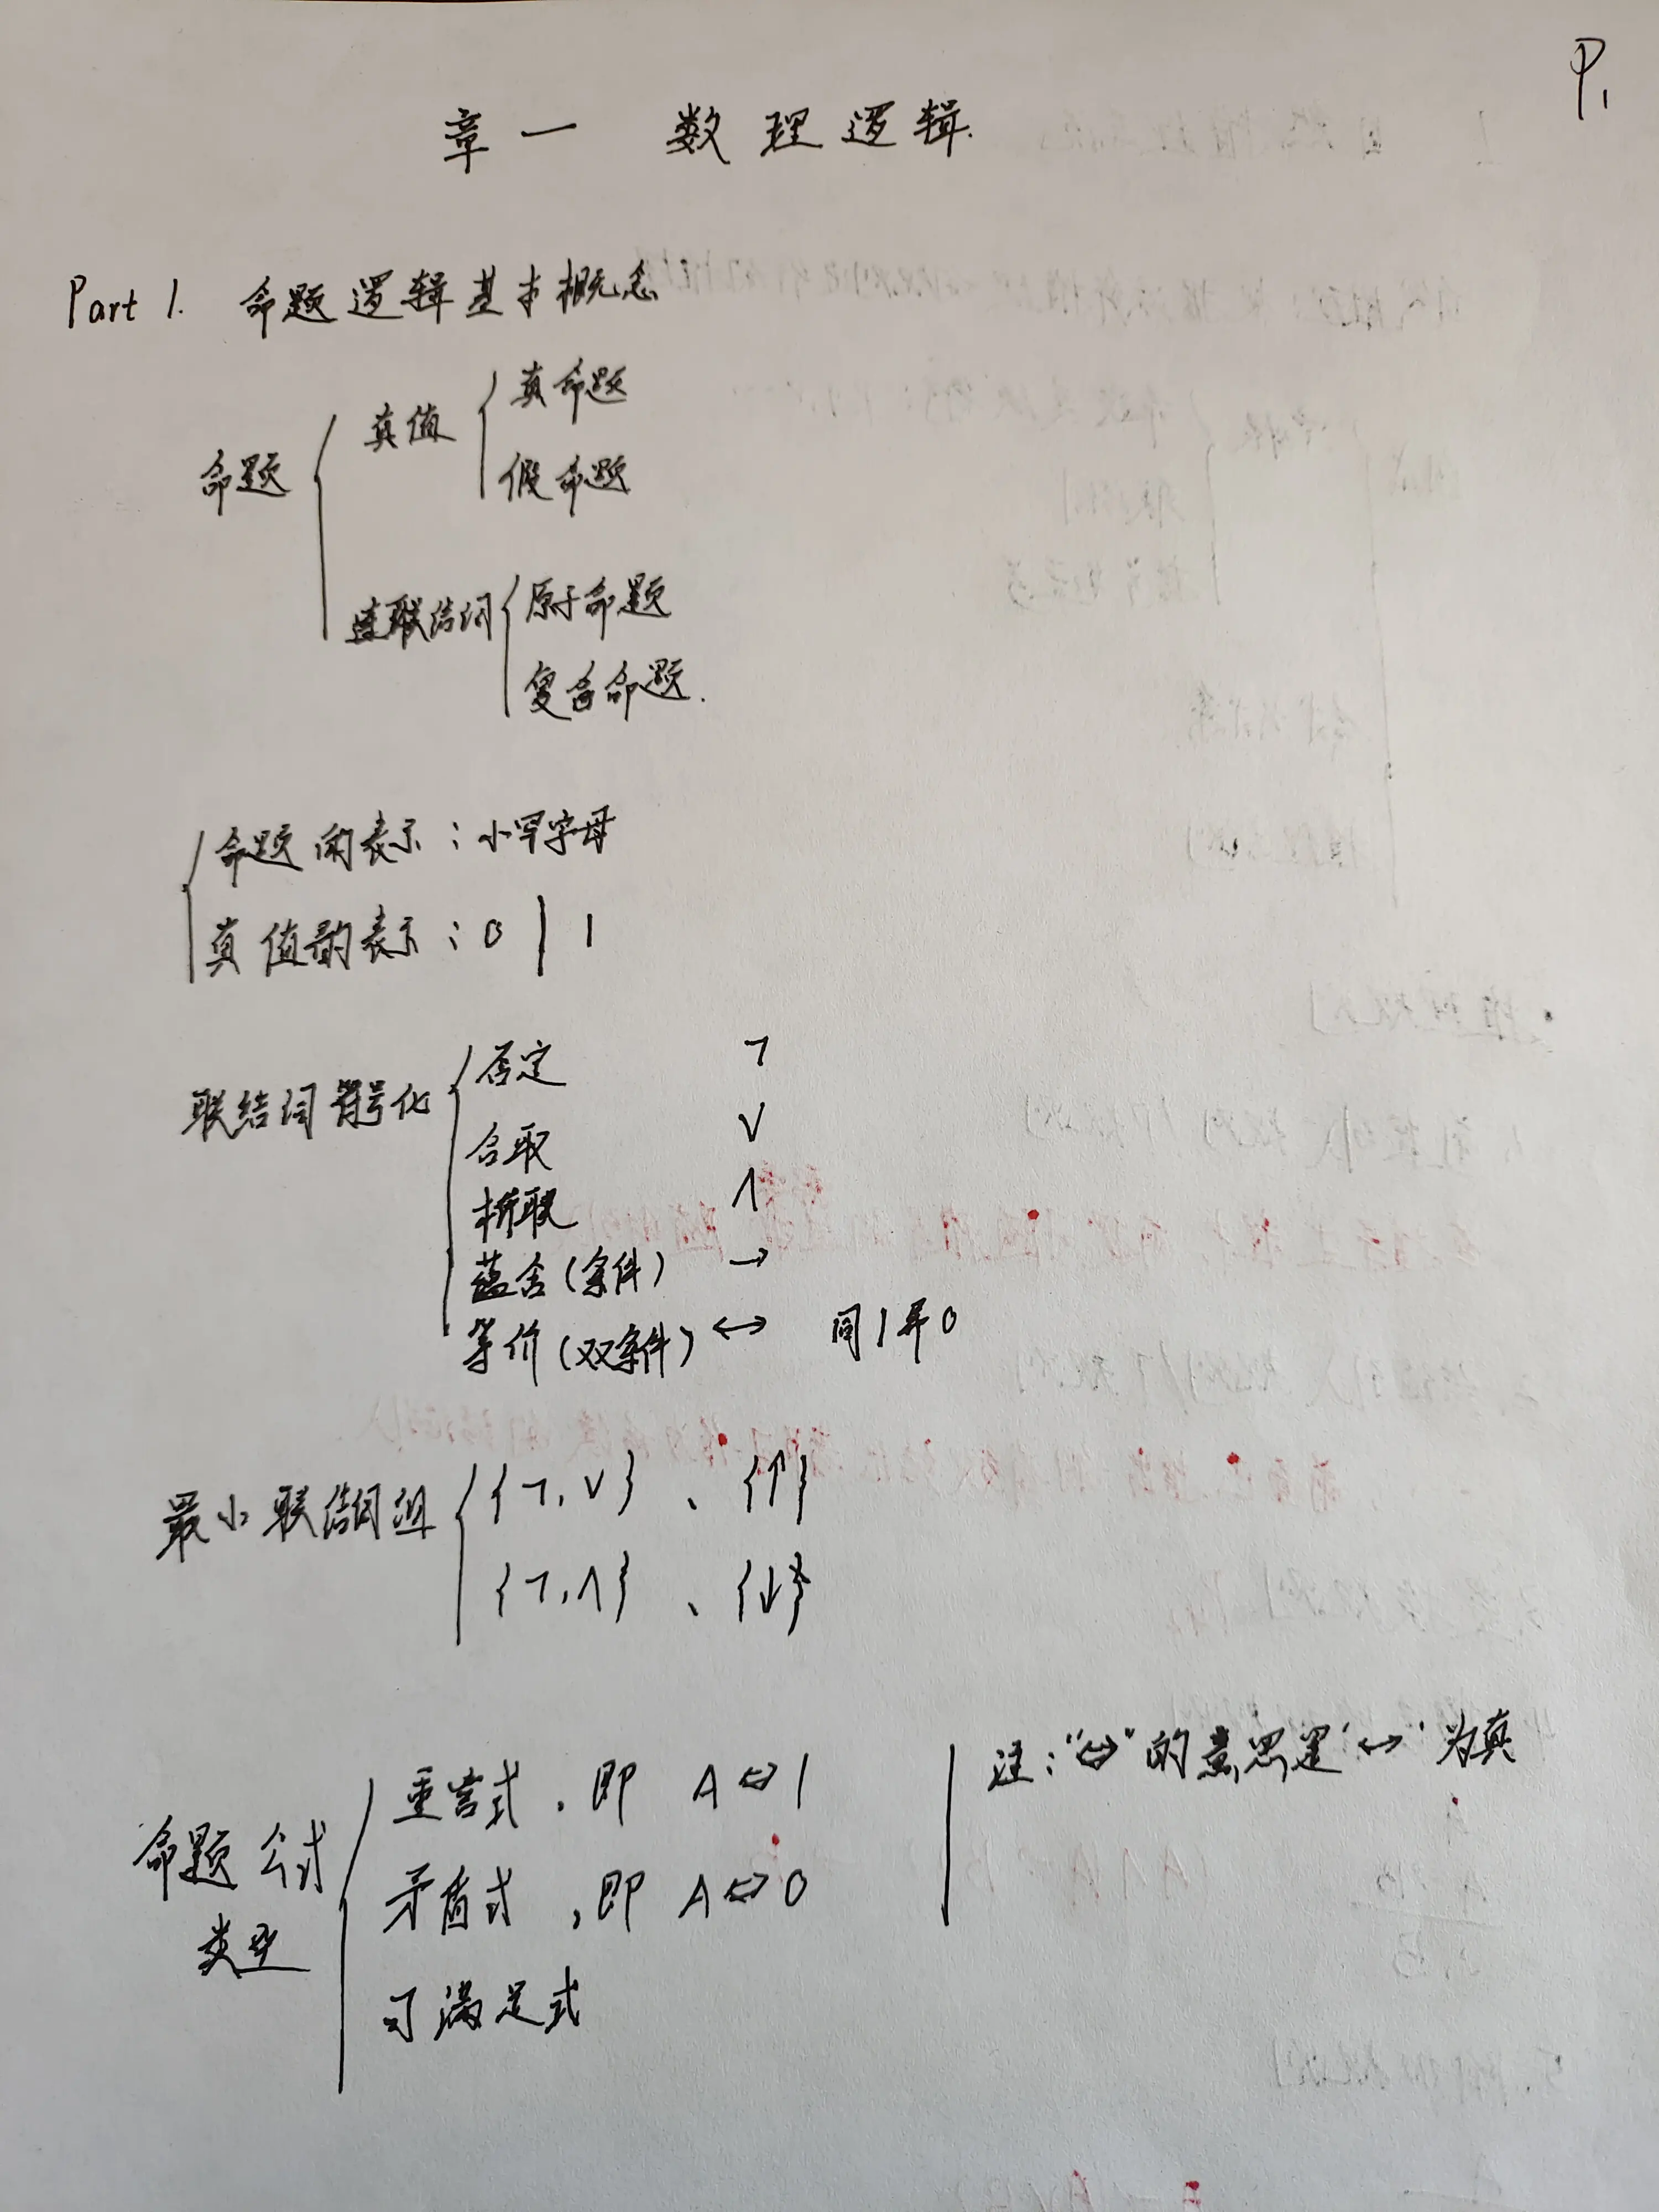 P1
章一 数理逻辑.
Part 1. 命题逻辑基本概念
命题 { 真值 { 真命题
假命题
联结词 { 原子命题
复合命题.
{ 命题的表示:小写字母
真值的表示:0 | 1
联结词符号化 { 否定 ¬
合取 ∨
析取 ∧
蕴含(条件) →
等价(双条件) ↔ 同1异0
最小联结词组 { {¬,∨} 、{↑}
{¬,∧} 、{↓}
命题公式类型 { 重言式,即 A⇔1
矛盾式,即 A⇔0
可满足式
注:"⇔"的意思是'↔'为真